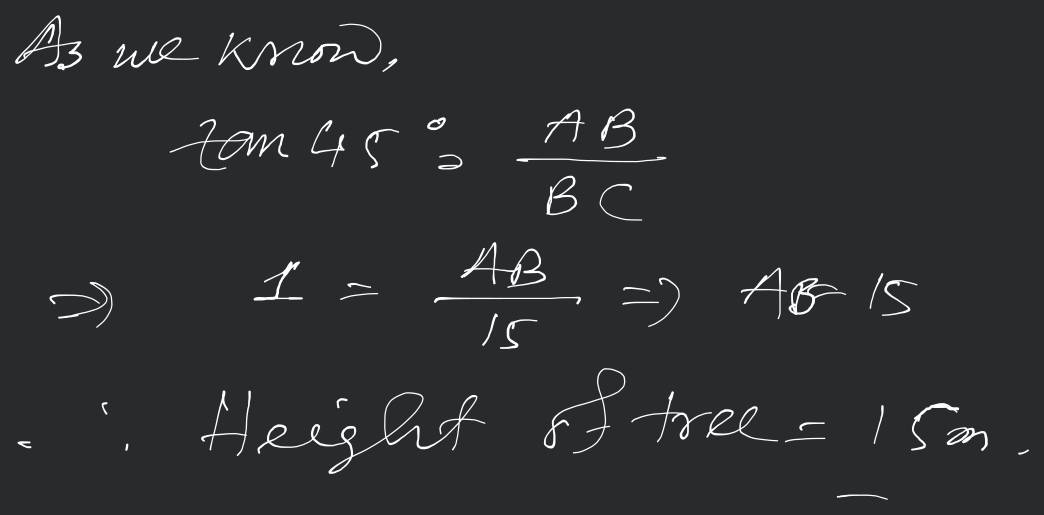 As we know,
tan 45° = AB / BC
⇒ 1 = AB / 15 ⇒ AB = 15
∴ Height of tree = 15m.